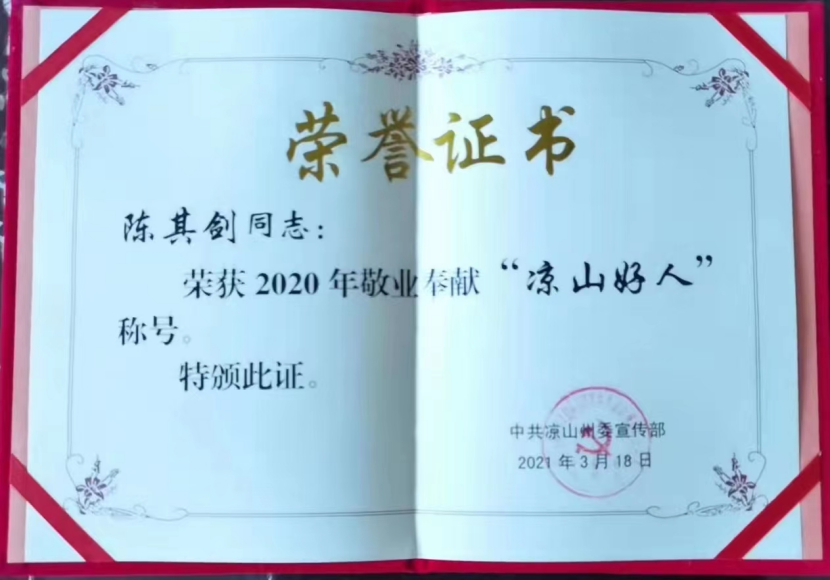 荣誉证书
陈其剑同志：
荣获2020年敬业奉献“凉山好人”
称号。
特颁此证。
中共凉山州委宣传部
2021年3月18日